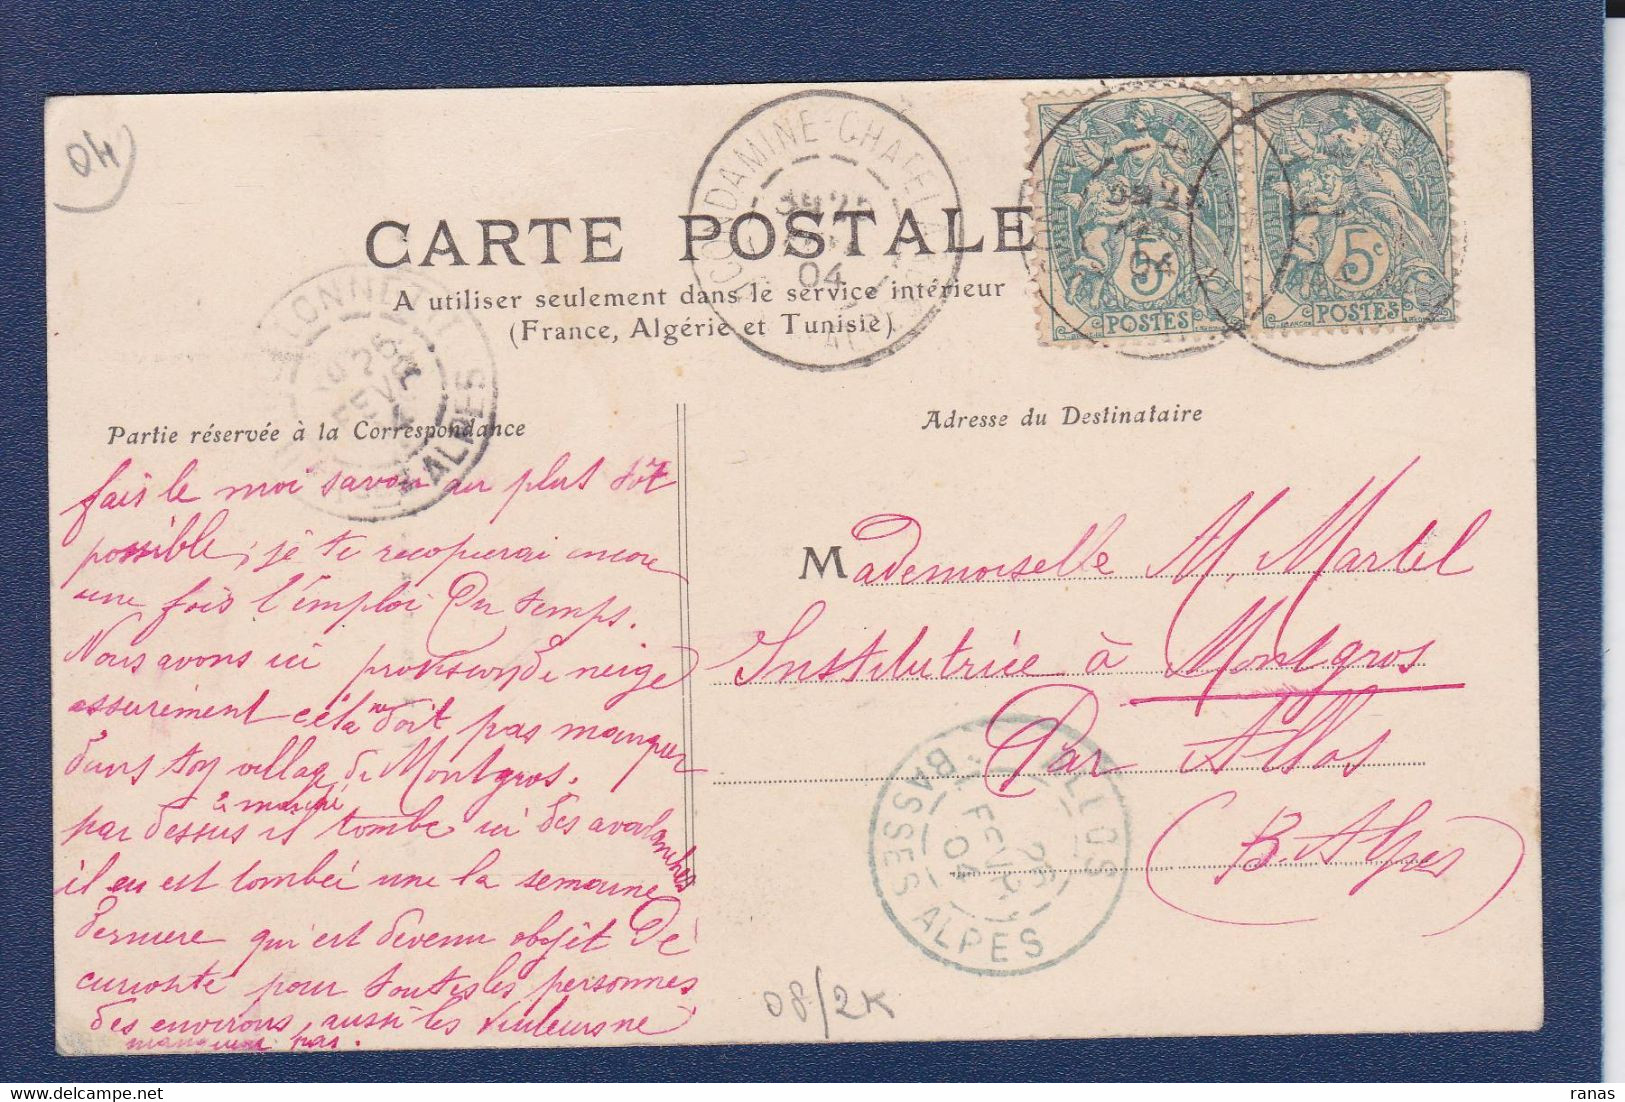 04
CARTE POSTALE
A utiliser seulement dans le service intérieur
(France, Algérie et Tunisie)
CONDAMINE-CHATELARD
04
ALPES
5c
POSTES
5c
POSTES
Partie réservée à la Correspondance
fais le moi savoir au plus tôt
possible, je te recopierai encore
une fois l'emploi du temps.
Nous avons ici provision de neige
assurément cela ne doit pas manquer
dans ton village de Montgros.
par dessus le marché il tombe ici des avalanches
il en est tombée une la semaine
dernière qui est devenu objet de
curiosité pour toutes les personnes
des environs, aussi les visiteurs ne
manquent pas.
Adresse du Destinataire
Mademoiselle M. Martel
Institutrice à Montgros
Par Allos
(B. Alpes)
ALLOS
26
FEVR
04
BASSES ALPES
08/2K
ranas